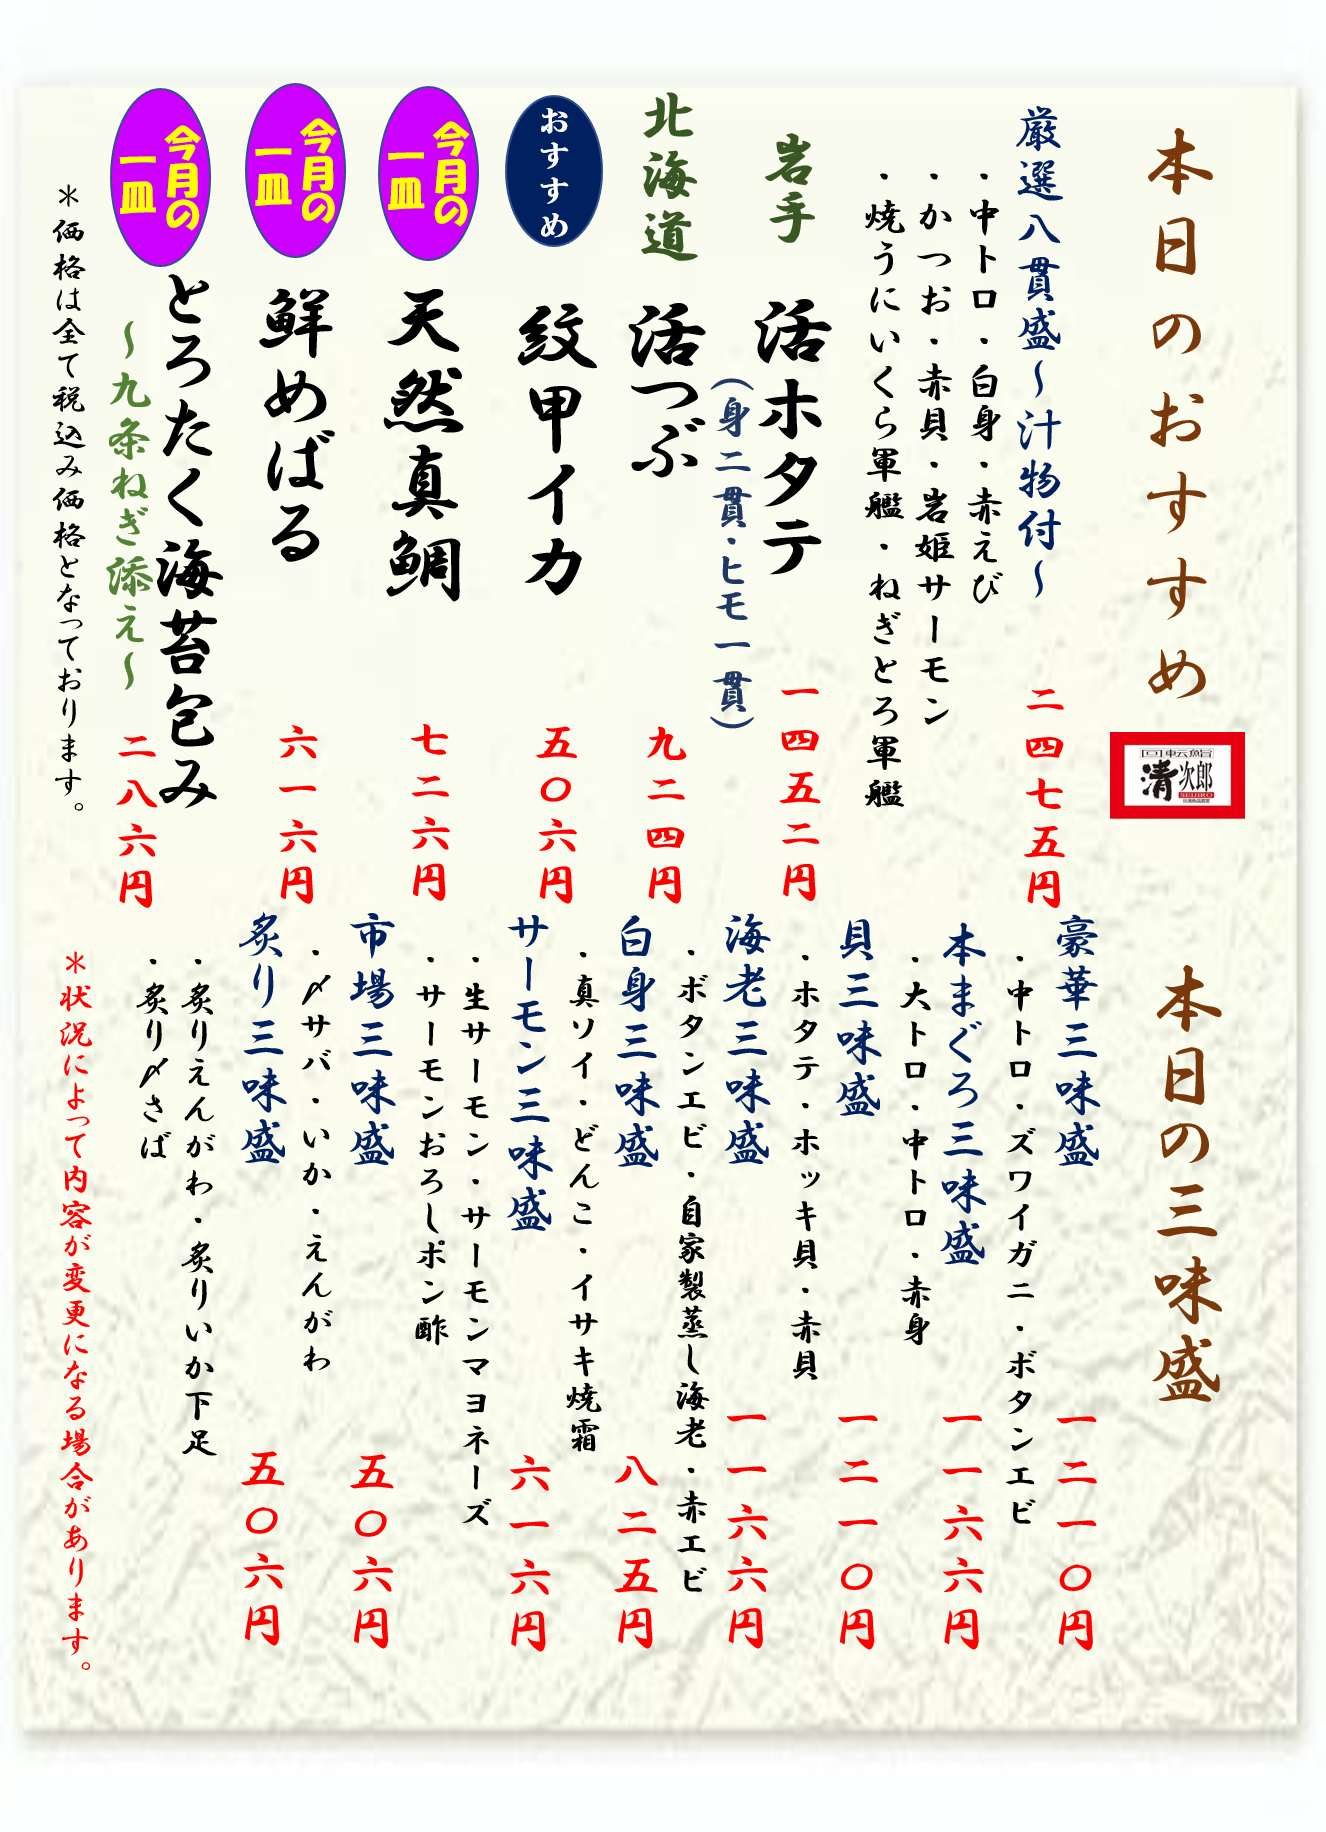 本日のおすすめ
回転鮨
清次郎
SEIJIRO
厳選八貫盛～汁物付～
二四七五円
・中トロ・白身・赤えび
・かつお・赤貝・岩姫サーモン
・焼うにいくら軍艦・ねぎとろ軍艦
岩手
活ホタテ
一四五二円
（身二貫・ヒモ一貫）
北海道
活つぶ
九二四円
おすすめ
紋甲イカ
五〇六円
今月の
一皿
天然真鯛
七二六円
今月の
一皿
鮮めばる
六一六円
今月の
一皿
とろたく海苔包み
～九条ねぎ添え～
二八六円
＊価格は全て税込み価格となっております。
本日の三味盛
豪華三味盛
一二一〇円
・中トロ・ズワイガニ・ボタンエビ
本まぐろ三味盛
一一六六円
・大トロ・中トロ・赤身
貝三味盛
一二一〇円
・ホタテ・ホッキ貝・赤貝
海老三味盛
一一六六円
・ボタンエビ・自家製蒸し海老・赤エビ
白身三味盛
八二五円
・真ソイ・どんこ・イサキ焼霜
サーモン三味盛
六一六円
・生サーモン・サーモンマヨネーズ
・サーモンおろしポン酢
市場三味盛
五〇六円
・〆サバ・いか・えんがわ
炙り三味盛
五〇六円
・炙りえんがわ・炙りいか下足
・炙り〆さば
＊状況によって内容が変更になる場合があります。